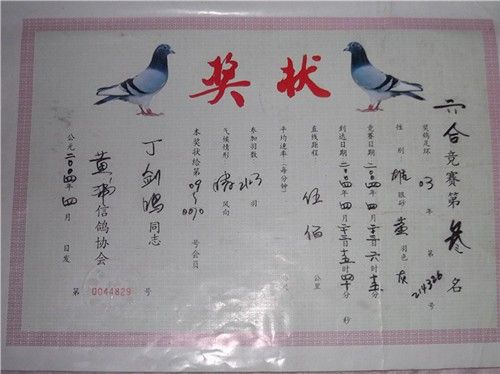 奖状
六合竞赛第叁名
奖鸽足环 03 年 第 214326 号
性别 雄 眼砂 黄 羽色 灰
竞赛日期二〇〇四年四月二十三日六时十五分
到达日期二〇〇四年四月二十三日十五时四十分 秒
直线距程 伍佰 公里
平均速率(每分钟)
参加羽数 羽
气候情形 风向
本奖状给第09~0090号会员
丁剑鸣 同志
信鸽协会
公元二〇〇四年四月 日发
第 0044829 号